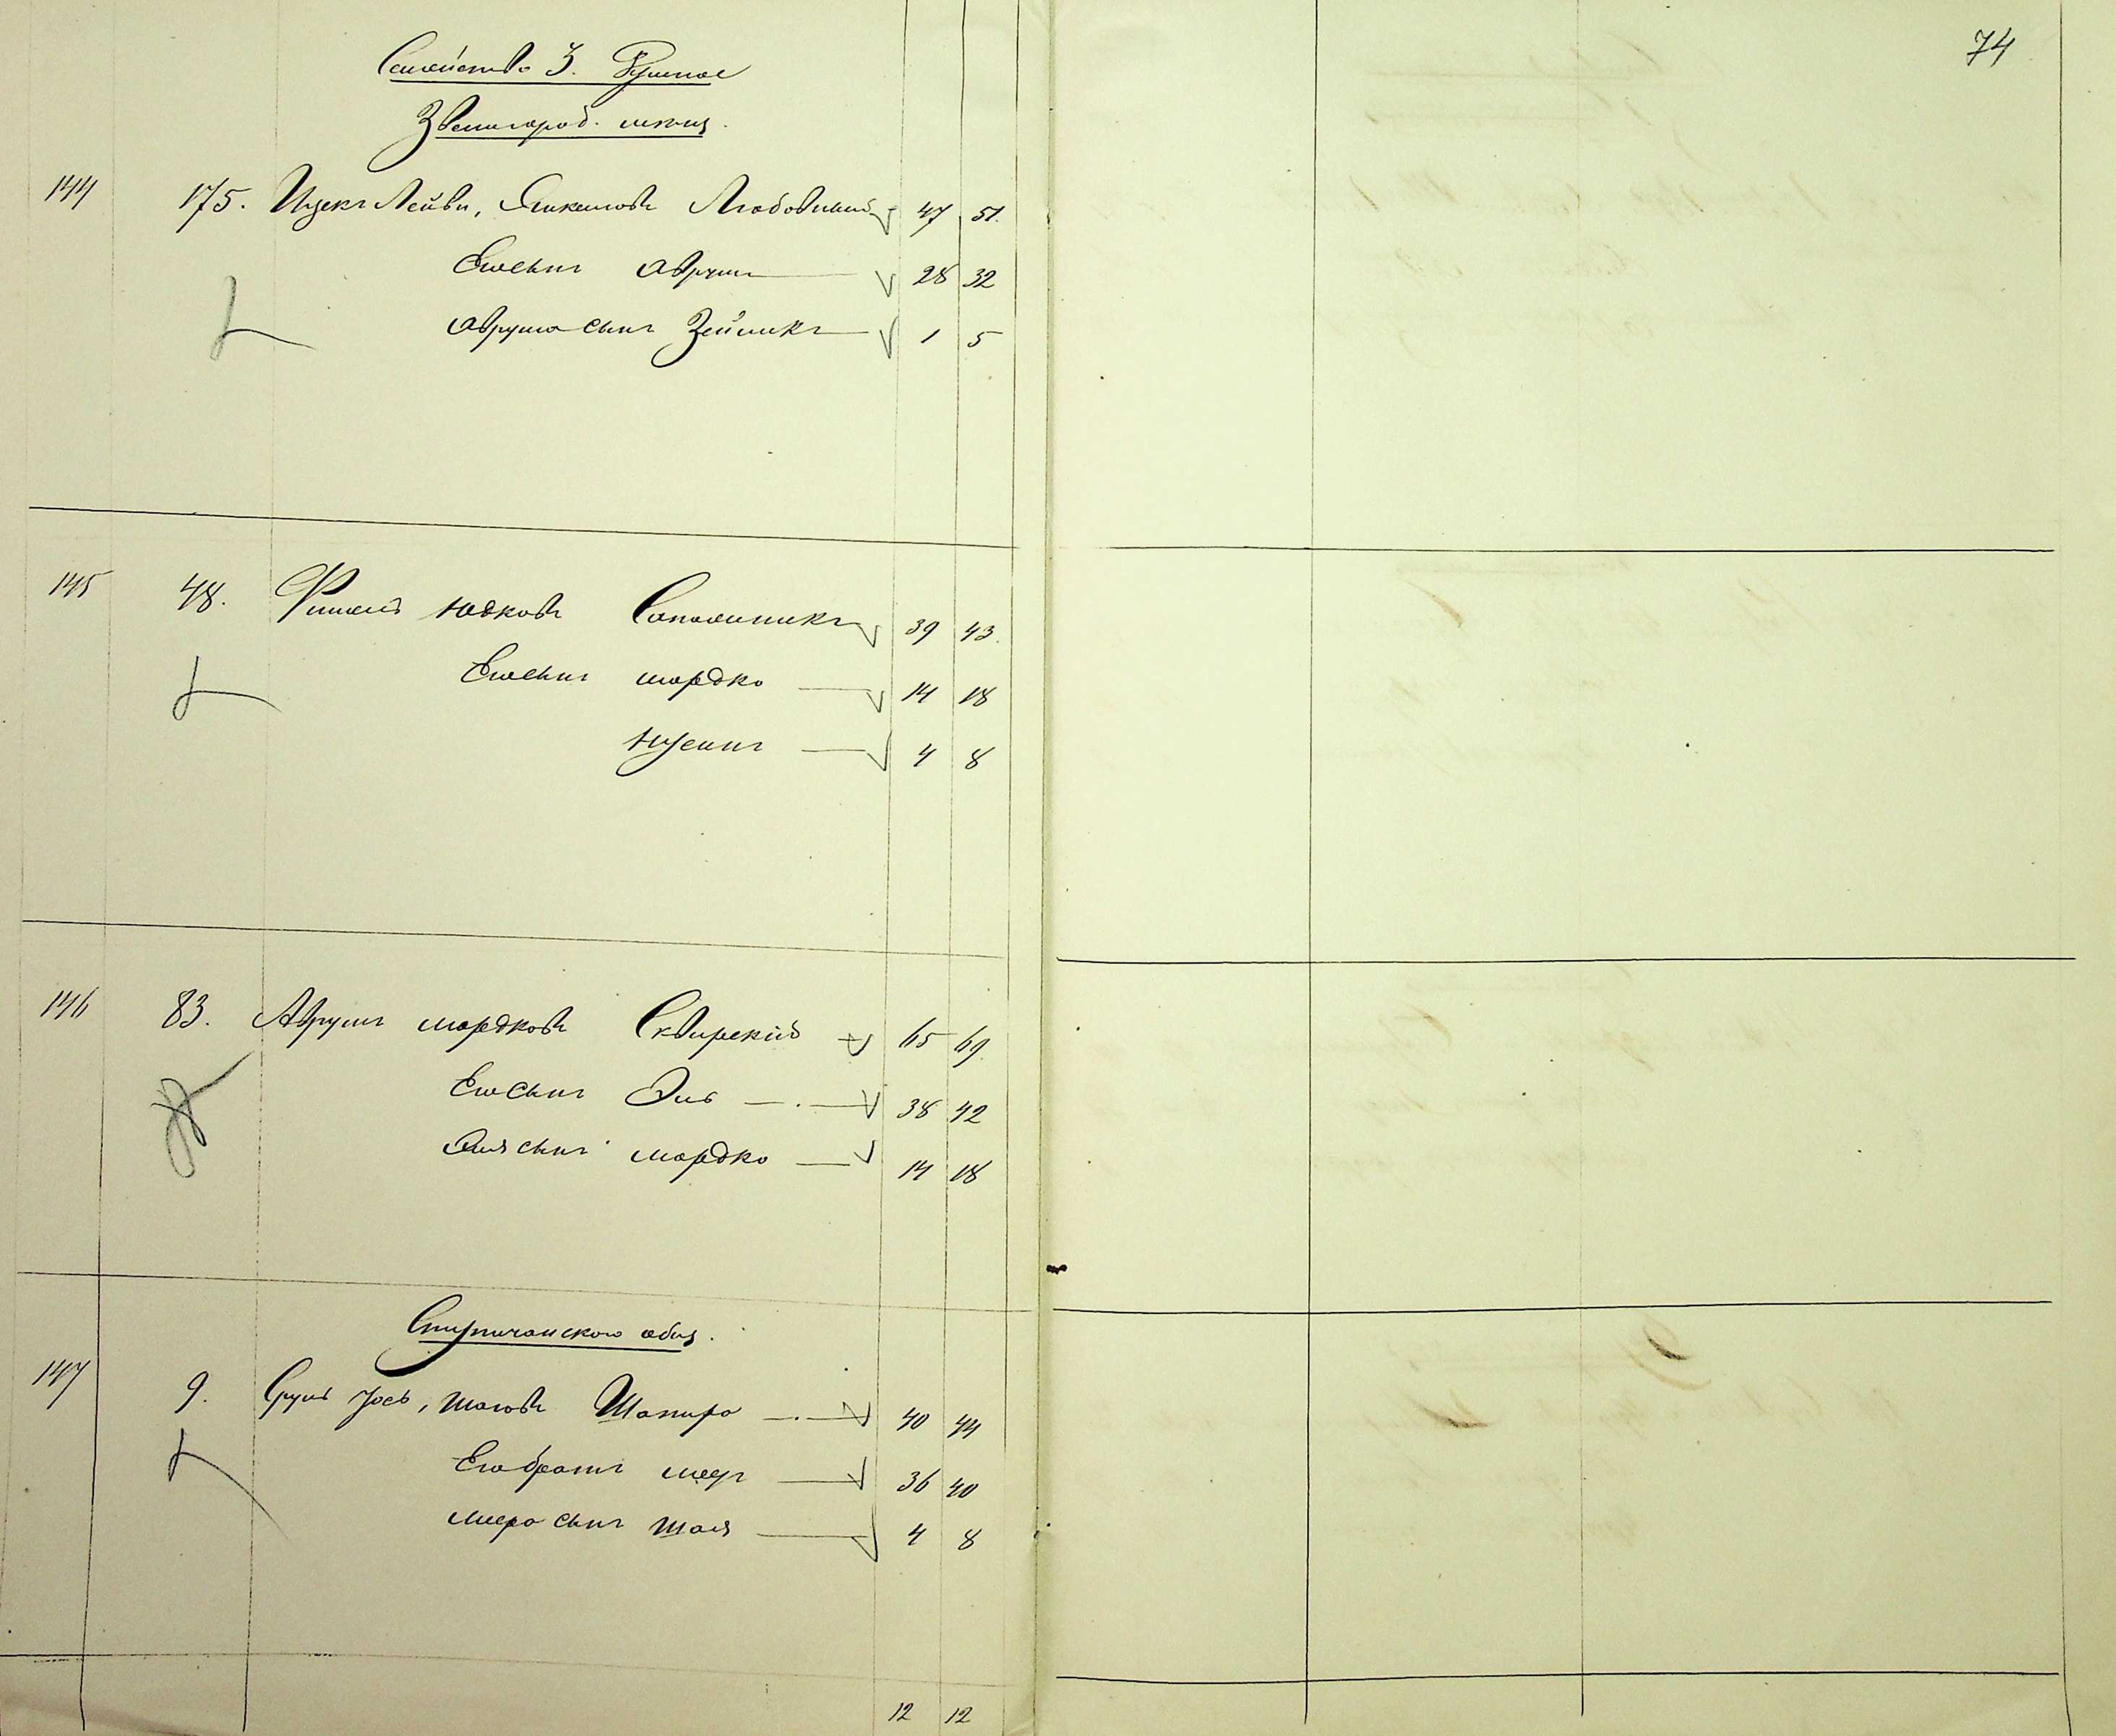 74
Семейство 3. Душное
Звенигород. мѣщ.
144 175. Ицекъ Лейви, Янкелевъ Любовицкій 47 51.
Его сынъ Аврумъ 28 32
Аврума сынъ Зейликъ 1 5
145 48. Фишель Юдковъ Сапожникъ 39 43.
Его сынъ Мордко 14 18
Нусинъ 4 8
146 83. Аврумъ Мордковъ Сквирскій 65 69.
Его сынъ Эль 38 42
Эля сынъ Мордко 14 18
147 9. Сруль Іось, Шаевъ Шапиро 40 44
Его братъ Мееръ 36 40
Меера сынъ Шая 4 8
12 12